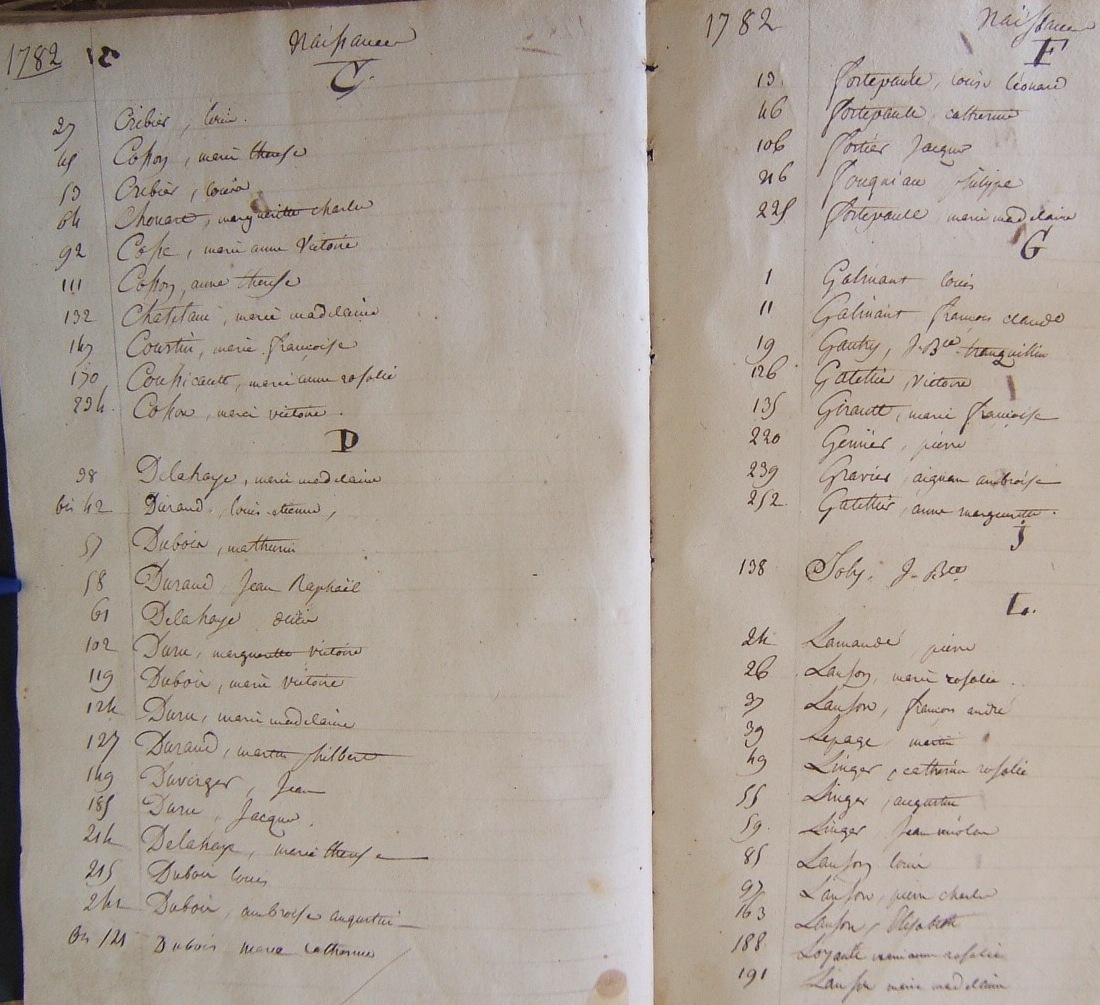 1782
Naissance
C.
27 Cribier, louis.
45 Cosson, marie therese
53 Cribier, louis
64 Chouart, marguerite charles
92 Cosse, marie anne Victoire
111 Cosson, anne therese
132 Chatelain, marie madelaine
147 Courtin, marie françoise
170 marie anne rosalie
234. Cosson, marie victoire.
D
38 Delahaye, marie madelaine
bis 42 Durand, louis etienne,
57 Dubois, mathurin
58 Durand Jean Raphaël
61 Delahaye
102 Duru, marguerite victoire
119 Dubois, marie victoire
124 Duru, marie madelaine
127 Durand, martin philbert
149 Duverger, Jean
185 Duru, Jacques.
214 Delahaye, marie therese
215 Dubois louis
242 Dubois, ambroise augustin
bis 121 Dubois marie catherine
1782
Naissance
F
13. Fortepaule, louis léonard
46 Fortepaule, catherine
106 Portier Jacques
216 Fouqueau philippe
225 Fortepaule marie madelaine
G
1 Galinant louis
11 Galinant françois claude
19 Gautry, J. Bte tranquillin
126 Gatellier, Victoire
135 Girault, marie françoise
220 Genier, pierre
239 Gravier, aignan ambroise
252 Gatellier, anne marguerite.
J
138 Joly, J. Bte
L.
24 Lamandé, pierre
26 Lanson, marie rosalie.
37 Lanson, françois andré
39 Lepage martin
49 Linger, catherine rosalie
55 Linger, augustin
59. Linger Jean nicolas
85 Lanson louis
97 Lanson, pierre charles
163 Lanson, Elisabeth
188 anne rosalie
191 Lanson marie madelaine